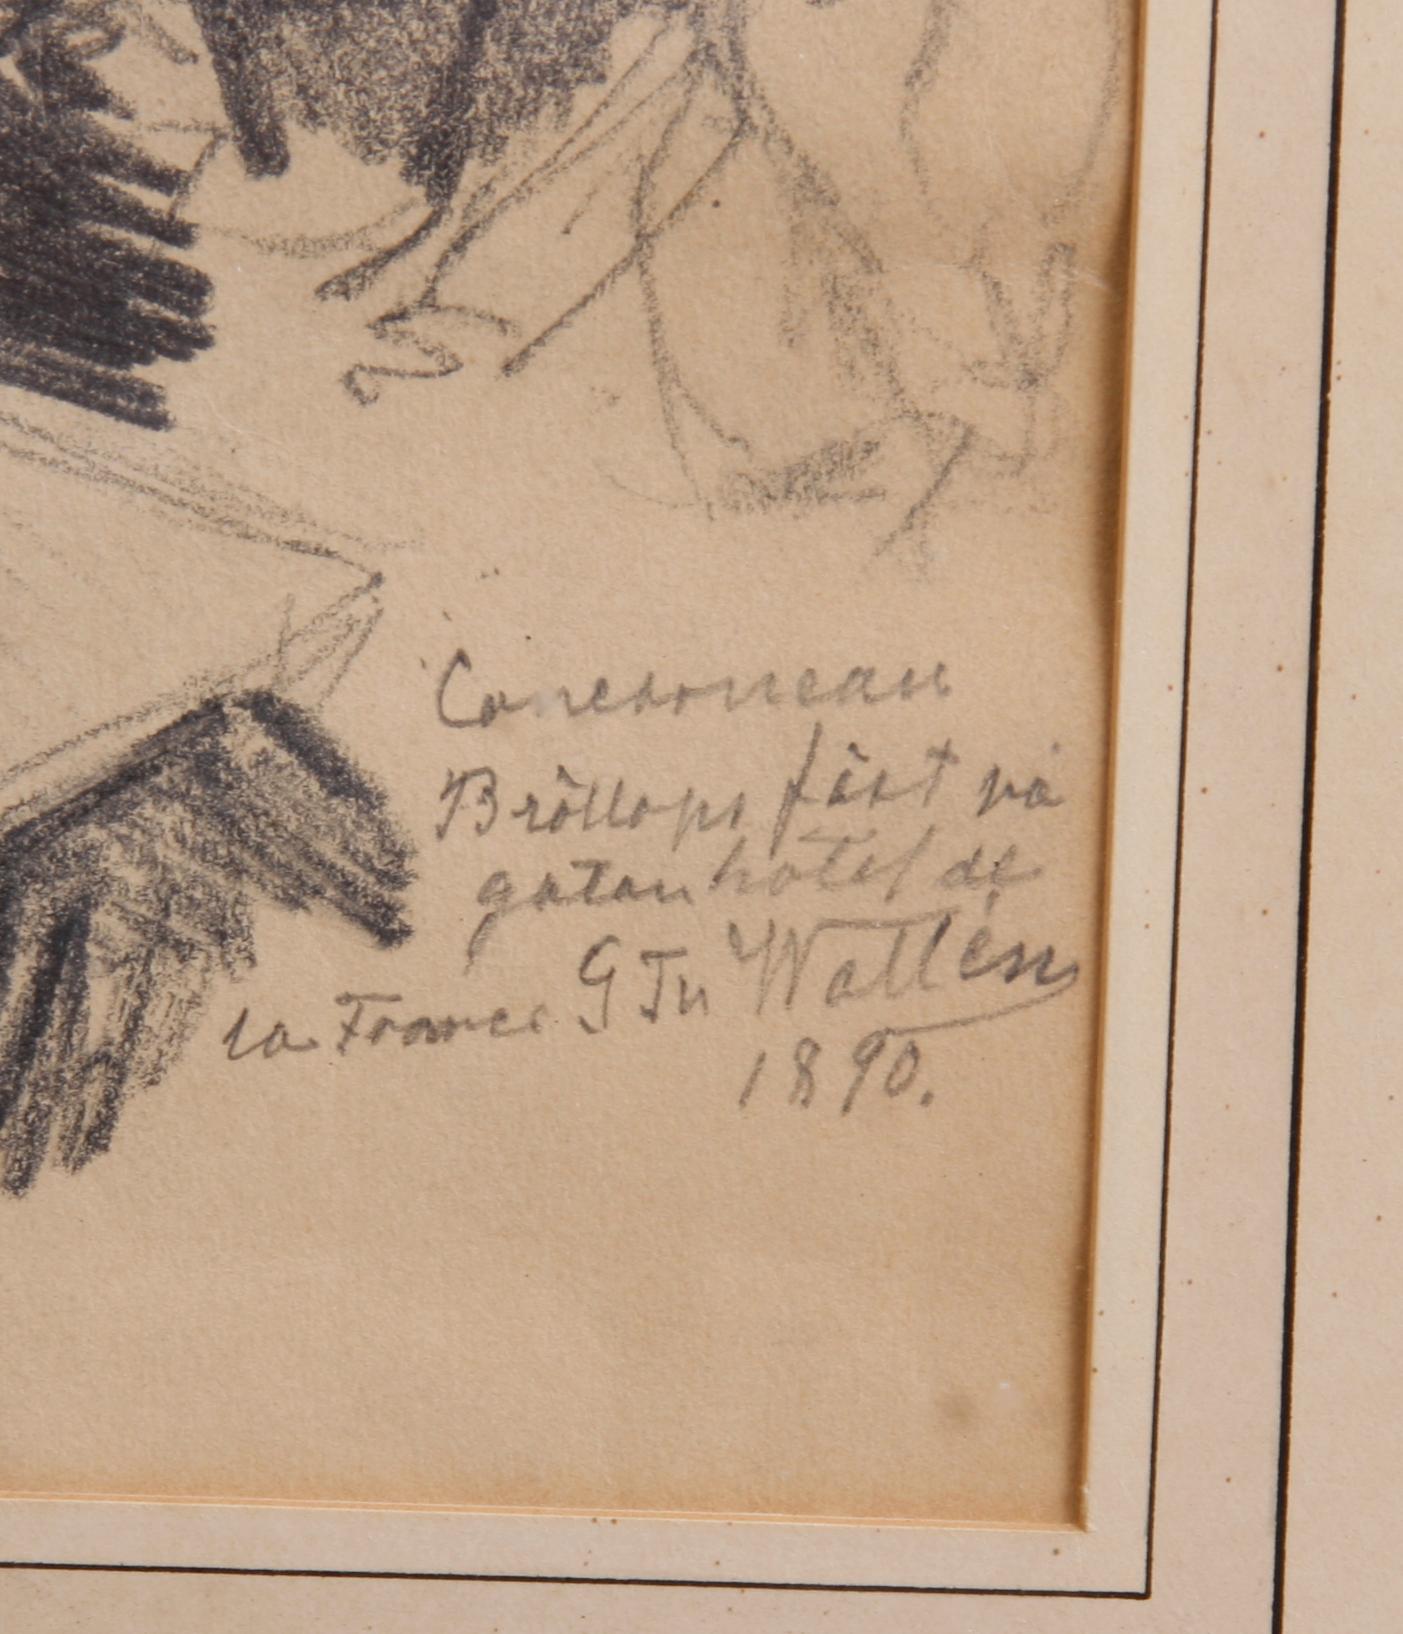 Concerneau
Bröllops fäst på
gatan hotel de
la France G Th Wallén
1890.